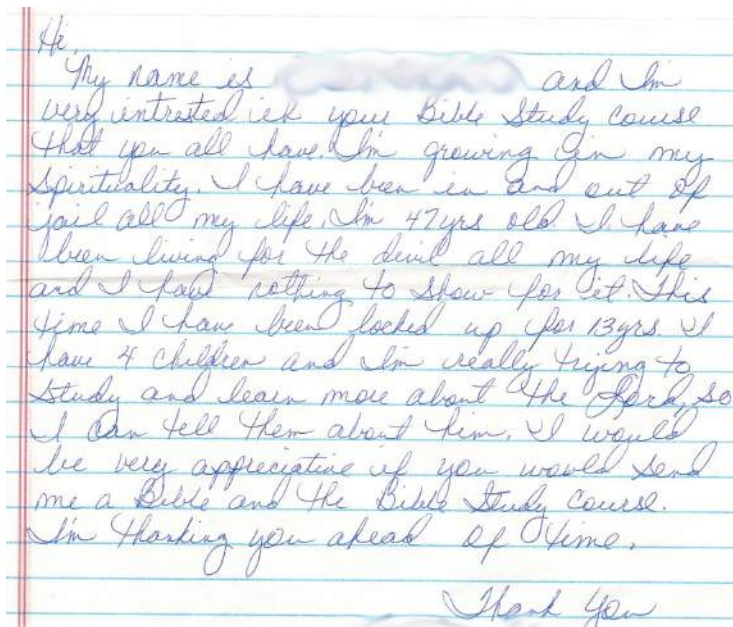 Hi,
My name is and I'm
very intrested in your Bible Study course
that you all have. I'm growing in my
Spirituality. I have been in and out of
jail all my life. I'm 47yrs old. I have
been living for the devil all my life
and I have nothing to show for it. This
time I have been locked up for 13yrs. I
have 4 children and I'm really trying to
Study and learn more about the Lord, so
I can tell them about him. I would
be very appreciative if you would send
me a Bible and the Bible Study Course.
I'm thanking you ahead of time.
Thank You